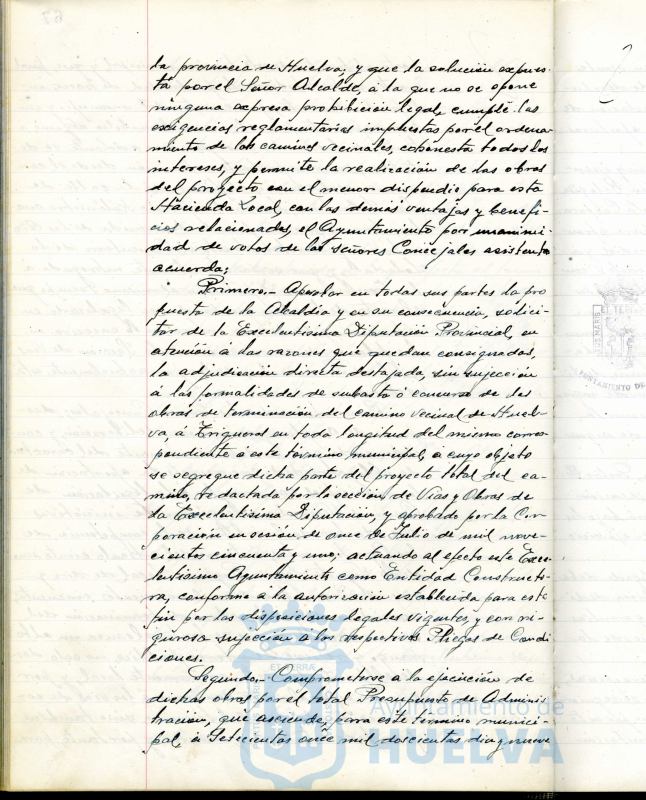 la provincia de Huelva; y que la solución expues-
ta por el Señor Alcalde, á la que no se opone
ninguna expresa prohibición legal, cumple las
exigencias reglamentarias impuestas por el ordena-
miento de los caminos vecinales, cohonesta todos los
intereses, y permite la realización de las obras
del proyecto con el menor dispendio para esta
Hacienda Local, con las demás ventajas y benefi-
cios relacionados, el Ayuntamiento por unanimi-
dad de votos de los señores Concejales asistentes
acuerda:
Primero.- Aprobar en todas sus partes la pro
puesta de la Alcaldía y en su consecuencia, solici-
tar de la Excelentísima Diputación Provincial, en
atención á las razones que quedan consignadas,
la adjudicación directa destajada, sin sujección
á las formalidades de subasta ó concurso de las
obras de terminación del camino vecinal de Huel-
va, á Trigueros en toda longitud del mismo corres-
pondiente á este término municipal, a cuyo objeto
se segregue dicha parte del proyecto total del ca-
mino, redactada por la sección de Vías y Obras de
la Excelentísima Diputación, y aprobado por la Cor-
poración en sesión, de once de Julio de mil nove-
cientos cincuenta y uno; actuando al efecto este Exce-
lentísimo Ayuntamiento como Entidad Constructo-
ra, conforme á la autorización establecida para este
fin por las disposiciones legales vigentes, y con ri-
gurosa sujección a los respectivos Pliegos de Condi-
ciones.
Segundo.- Comprometerse á la ejecución de
dichas obras por el total Presupuesto de Adminis-
tración, que asciende, para este término munici-
pal, á Setecientas once mil doscientas diez y nueve
Ayuntamiento de
HUELVA